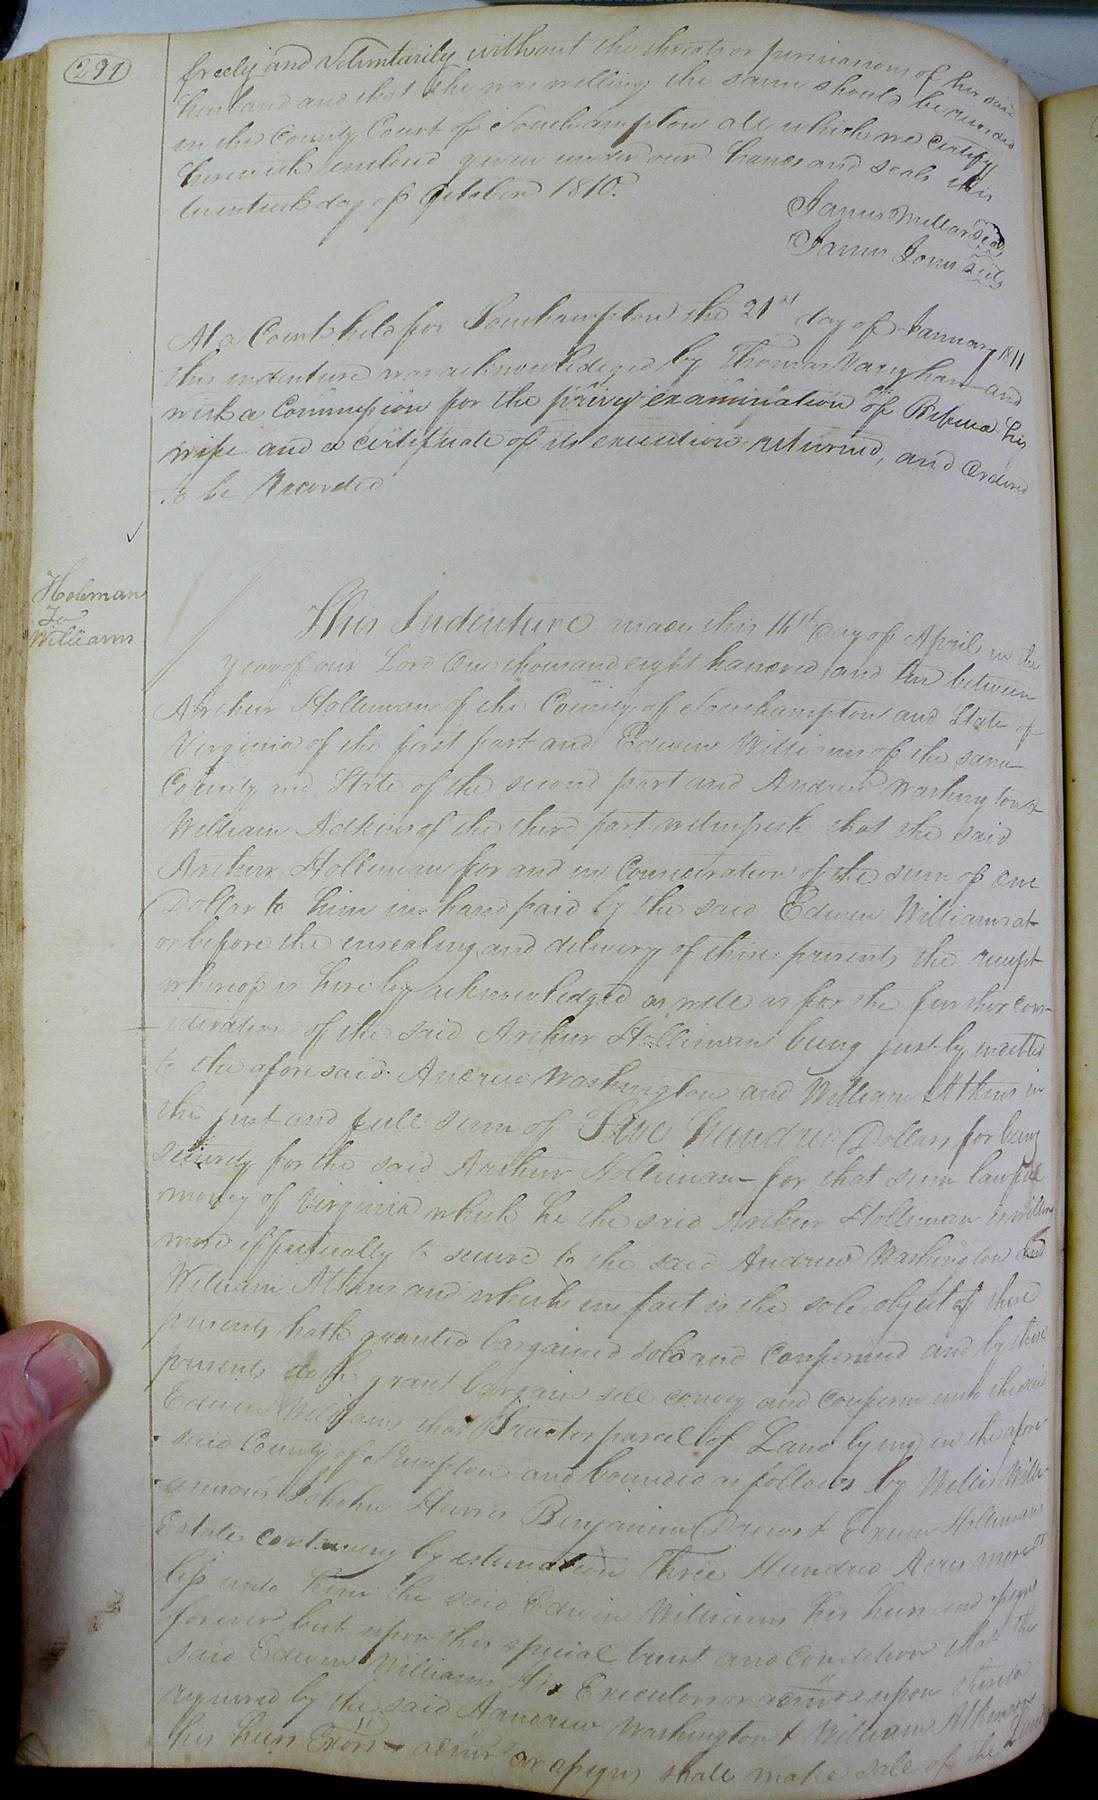 291
freely and Voluntarily without the threats or persuasions of her said
husband and that she was willing the same should be recorded
in the County Court of Southampton all which we certify
herewith enclosed given under our hands and seals this
twentieth day of October 1810.
James Millar Seal
James Jones Seal
At a Court held for Southampton the 21st day of January 1811
this indenture was acknowledged by Thomas Vaughan and
with a Commission for the privy examination of Rebecca his
wife and a certificate of its execution returned, and Ordered
to be Recorded
Holeman
To
Williams
This Indenture made this 14th day of April in the
year of our Lord One thousand eight hundred and ten between
Arthur Holleman of the County of Southampton and State of
Virginia of the first part and Edwin Williams of the same
County and State of the second part and Andrew Washington &
William Adkins of the third part witnesseth that the said
Arthur Holleman for and in Consideration of the sum of one
Dollar to him in hand paid by the said Edwin Williams at
or before the ensealing and delivery of these presents the receipt
whereof is hereby acknowledged as well as for the further con-
-sideration of the said Arthur Holliman being justly indebted
to the aforesaid Andrew Washington and William Atkins in
the just and full sum of Five Hundred Dollars for being
security for the said Arthur Holliman for that sum lawful
money of Virginia which he the said Arthur Holliman is willing
more effectually to secure to the said Andrew Washington and
William Atkins and which in fact is the sole object of these
presents hath granted bargained sold and confirmed and by these
presents doth grant bargain sell convey and confirm unto the said
Edwin Williams that Tract or parcel of Land lying in the afore-
said County of S.ampton and bounded as follows by Willis Willi-
Harris Benjamin Drews & Exum Hollemans
Estates containing by estimation Three Hundred Acres more or
less unto him the said Edwin Williams his heirs and assigns
forever but upon this special trust and Condition that the
said Edwin Williams His Executors or admrs upon
required by the said Aandrew Washington & William Atkinson
his heirs Exors admrs or assigns shall make sale of the